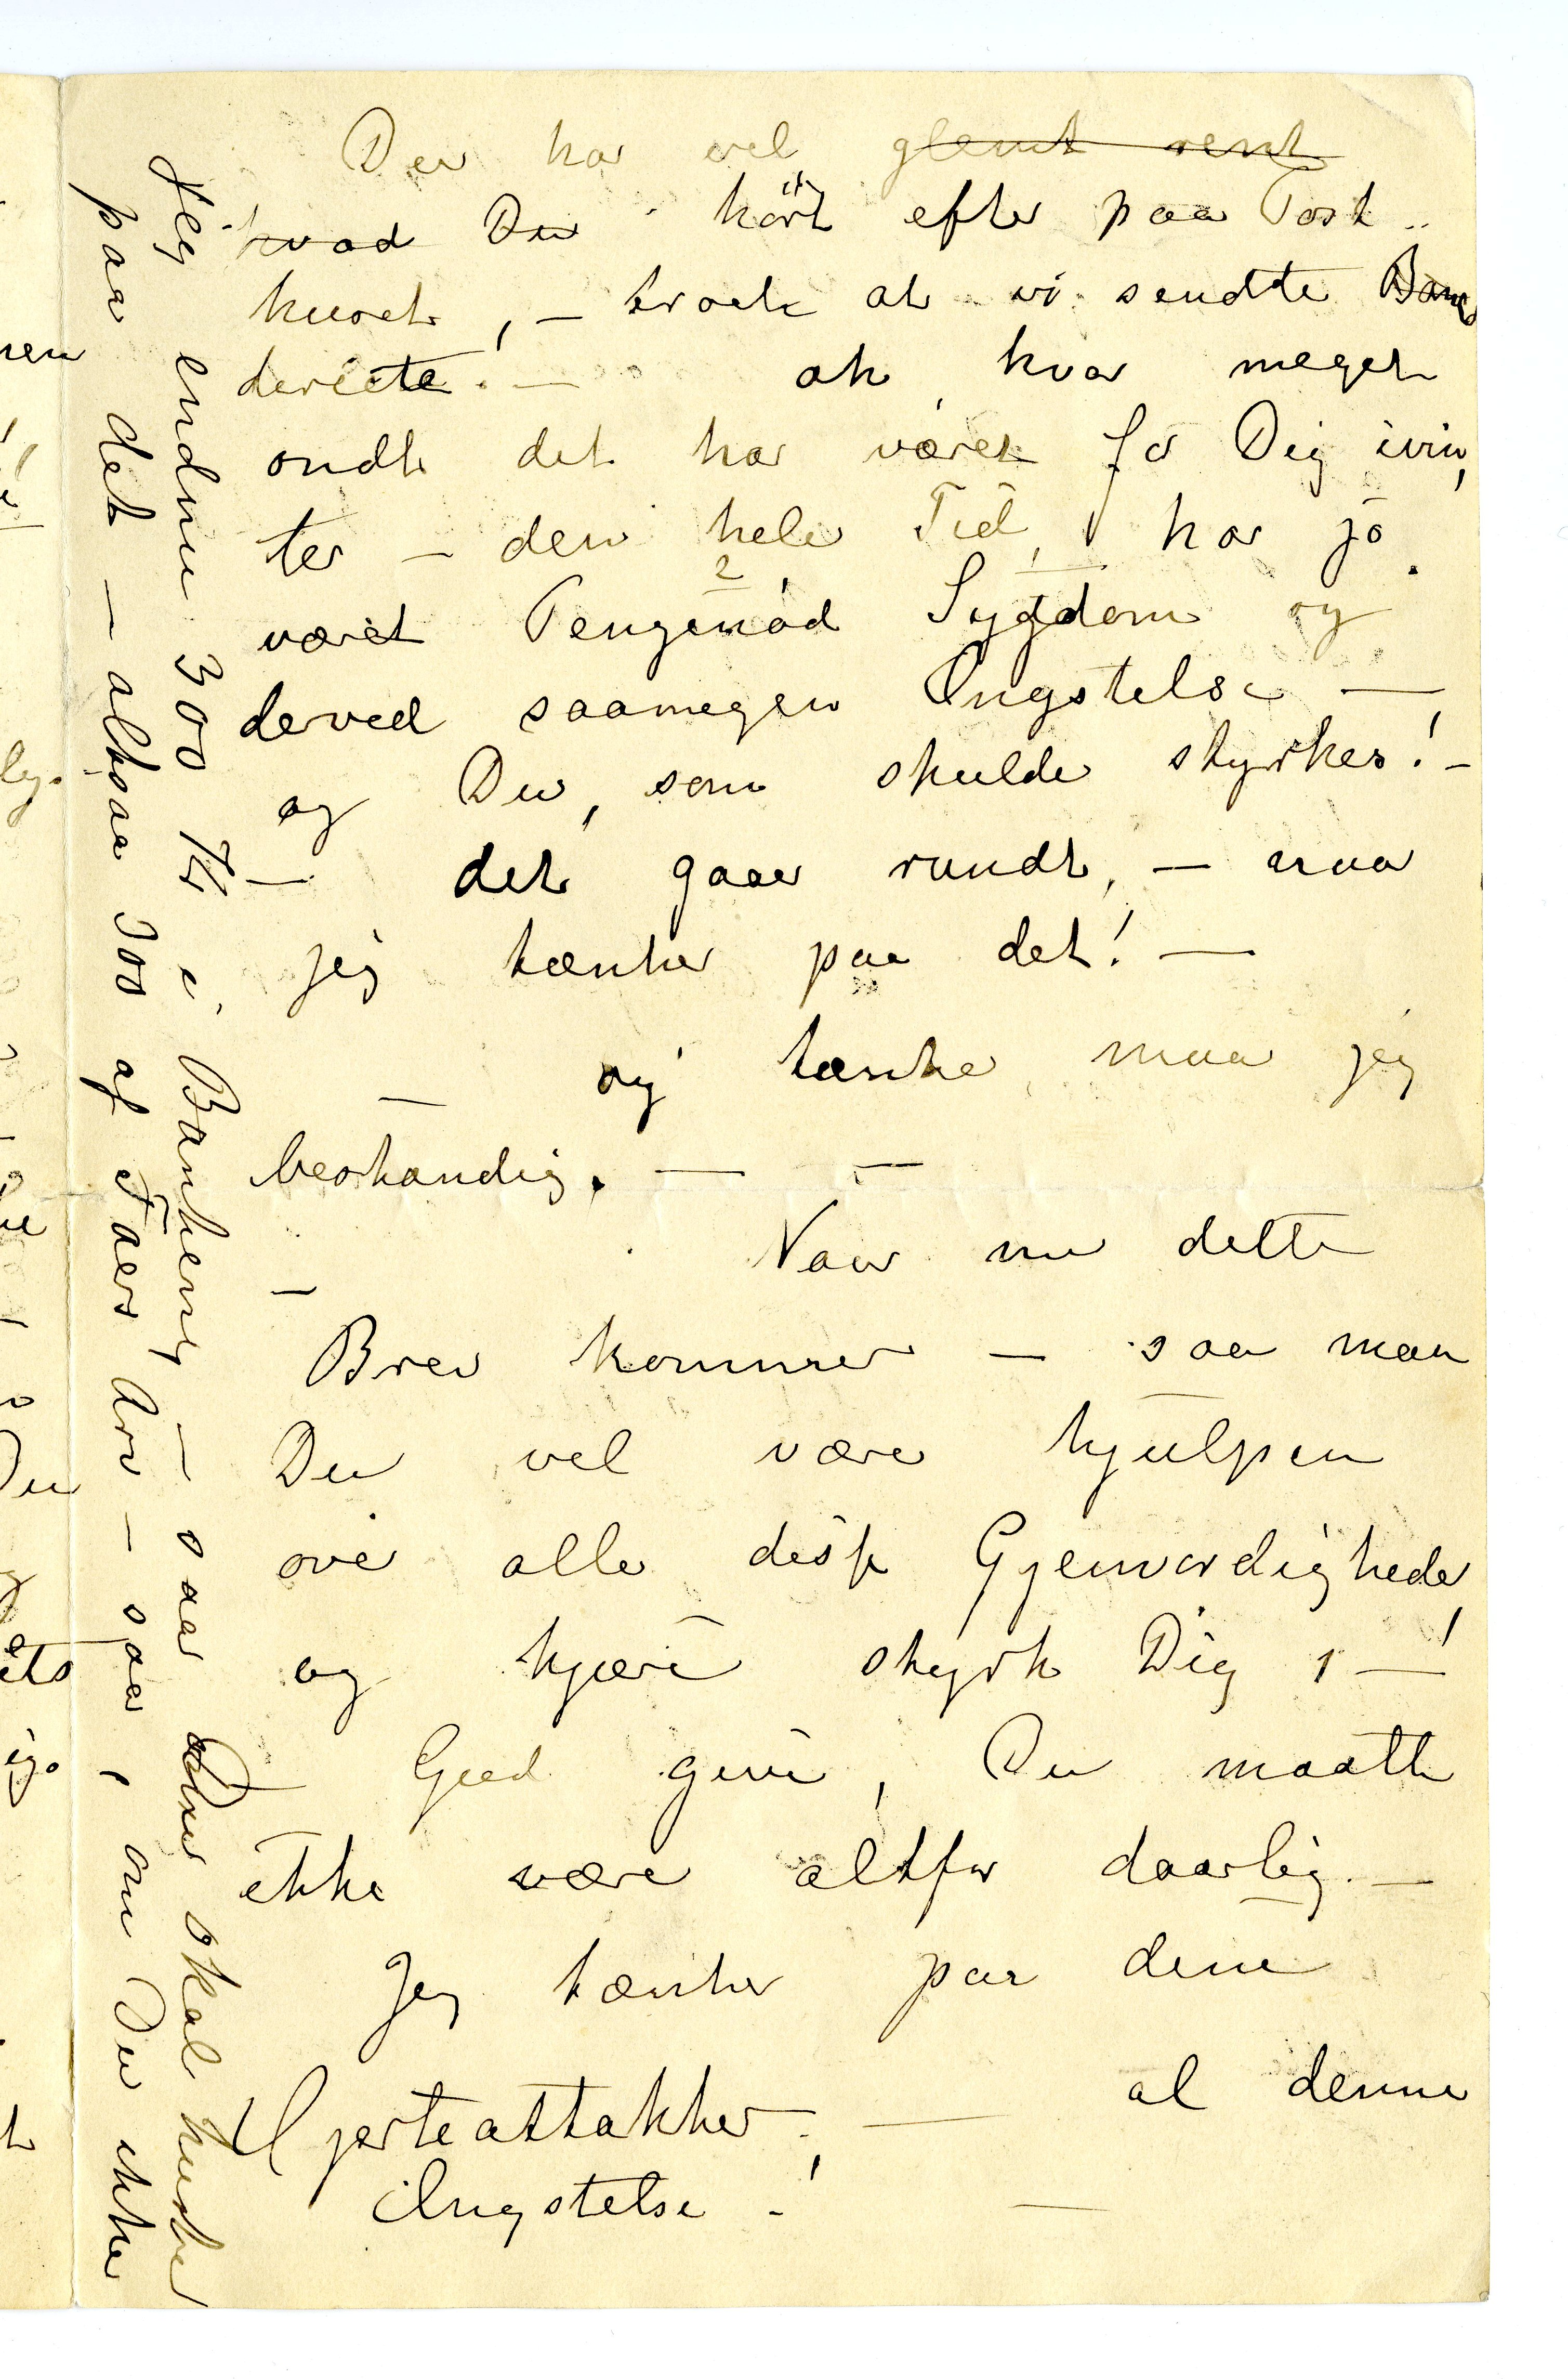 Du har vel glemt rent
hvad Du hört efter paa Post-
huset, – troet at vi sendte Bare
derecte. – ak, hvor meget
ondt det har været for Dig ivin,
ter – den hele Tid, har jo
været Pengenød Sygdom og
derved saamegen Ængstelse –
og Du, som skulde styrkes! –
– det gaar rundt, – naar
jeg tænker paa det! –
– og tænke maa jeg
bestandig. – –
– Naar nu dette
Brev kommer – saa maa
Du vel være hjulpen
over alle disse Gjenvordigheder,
og kjære styrk Dig, – !
– Gud give, Du maatte
ikke være altfor daarlig. –
Jeg tænker paa dine
Hjerteattakker, – al denne
Ængstelse – ! –
Jeg endnu 300 Kr i Banken, – saa Du skal huske
paa det – altsaa 300 af Faers Arv – saa, om Du ikke